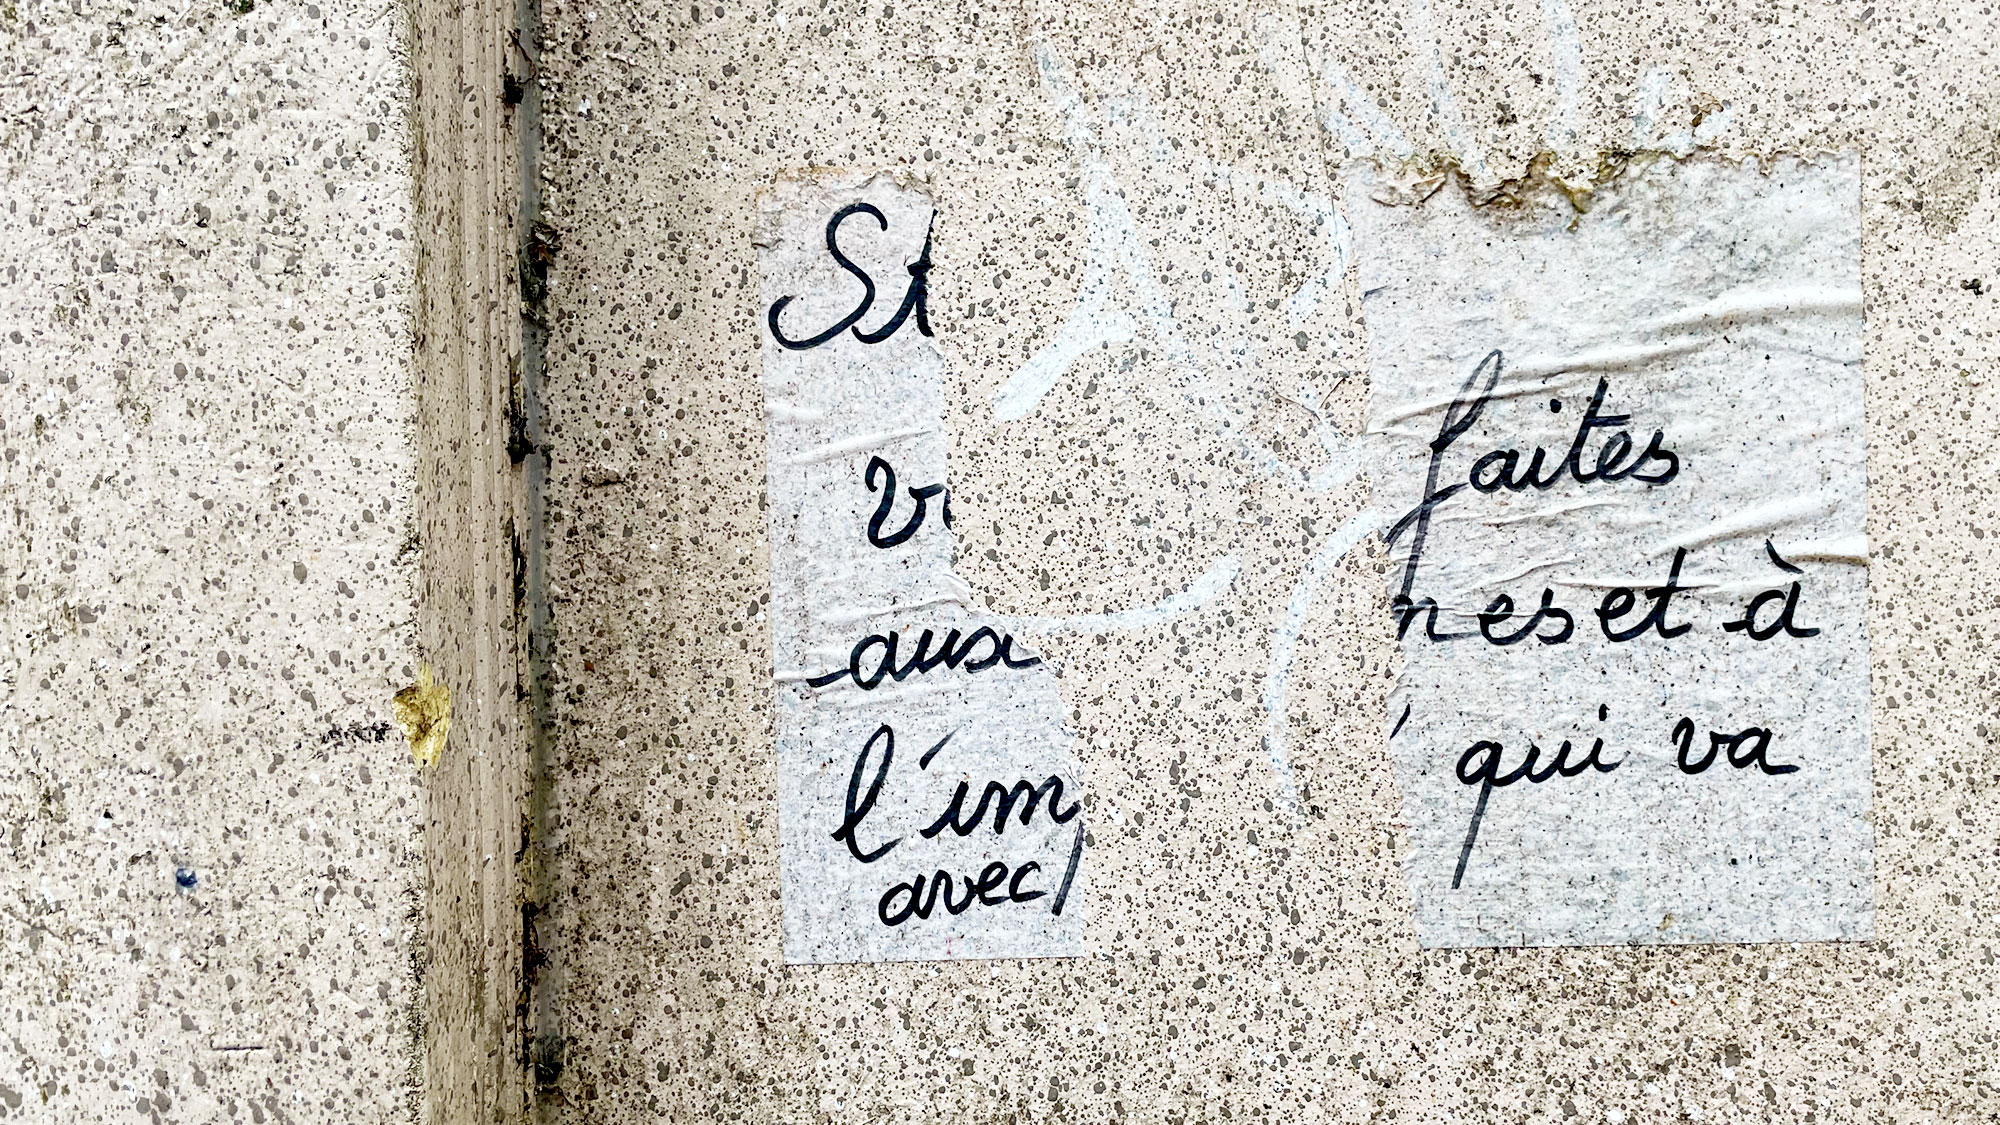 St
v
faites
aux
nes et à
l'im
qui va
avec